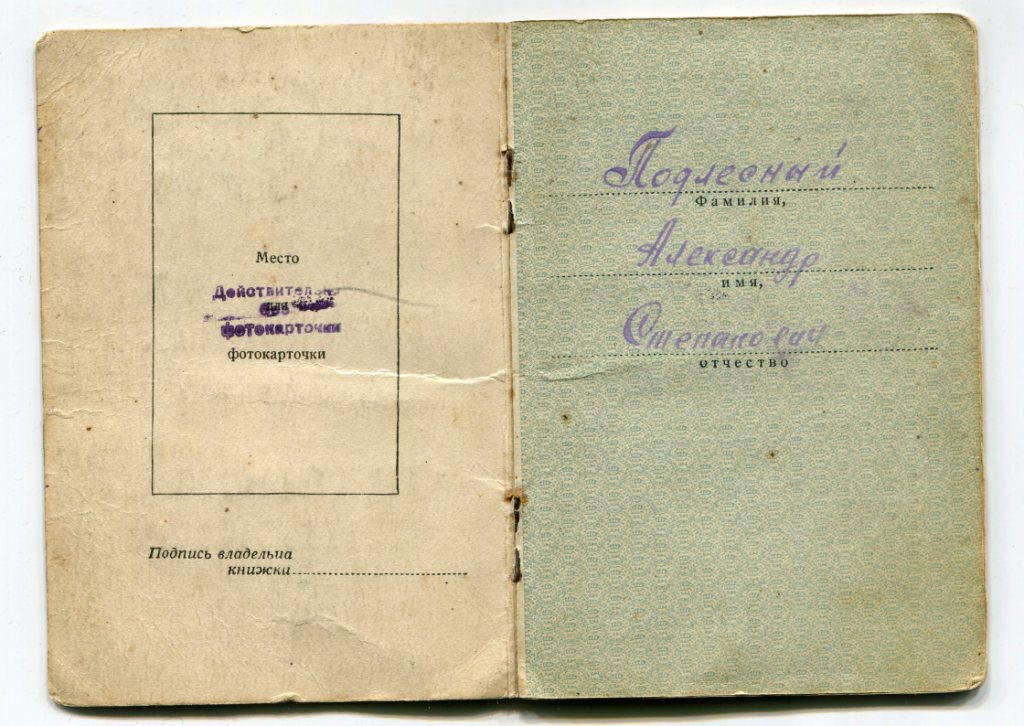 Место
Действительно
для
без
фотокарточки
фотокарточки
Подпись владельца
книжки
Подлесный
Фамилия,
Александр
имя,
Степанович
отчество